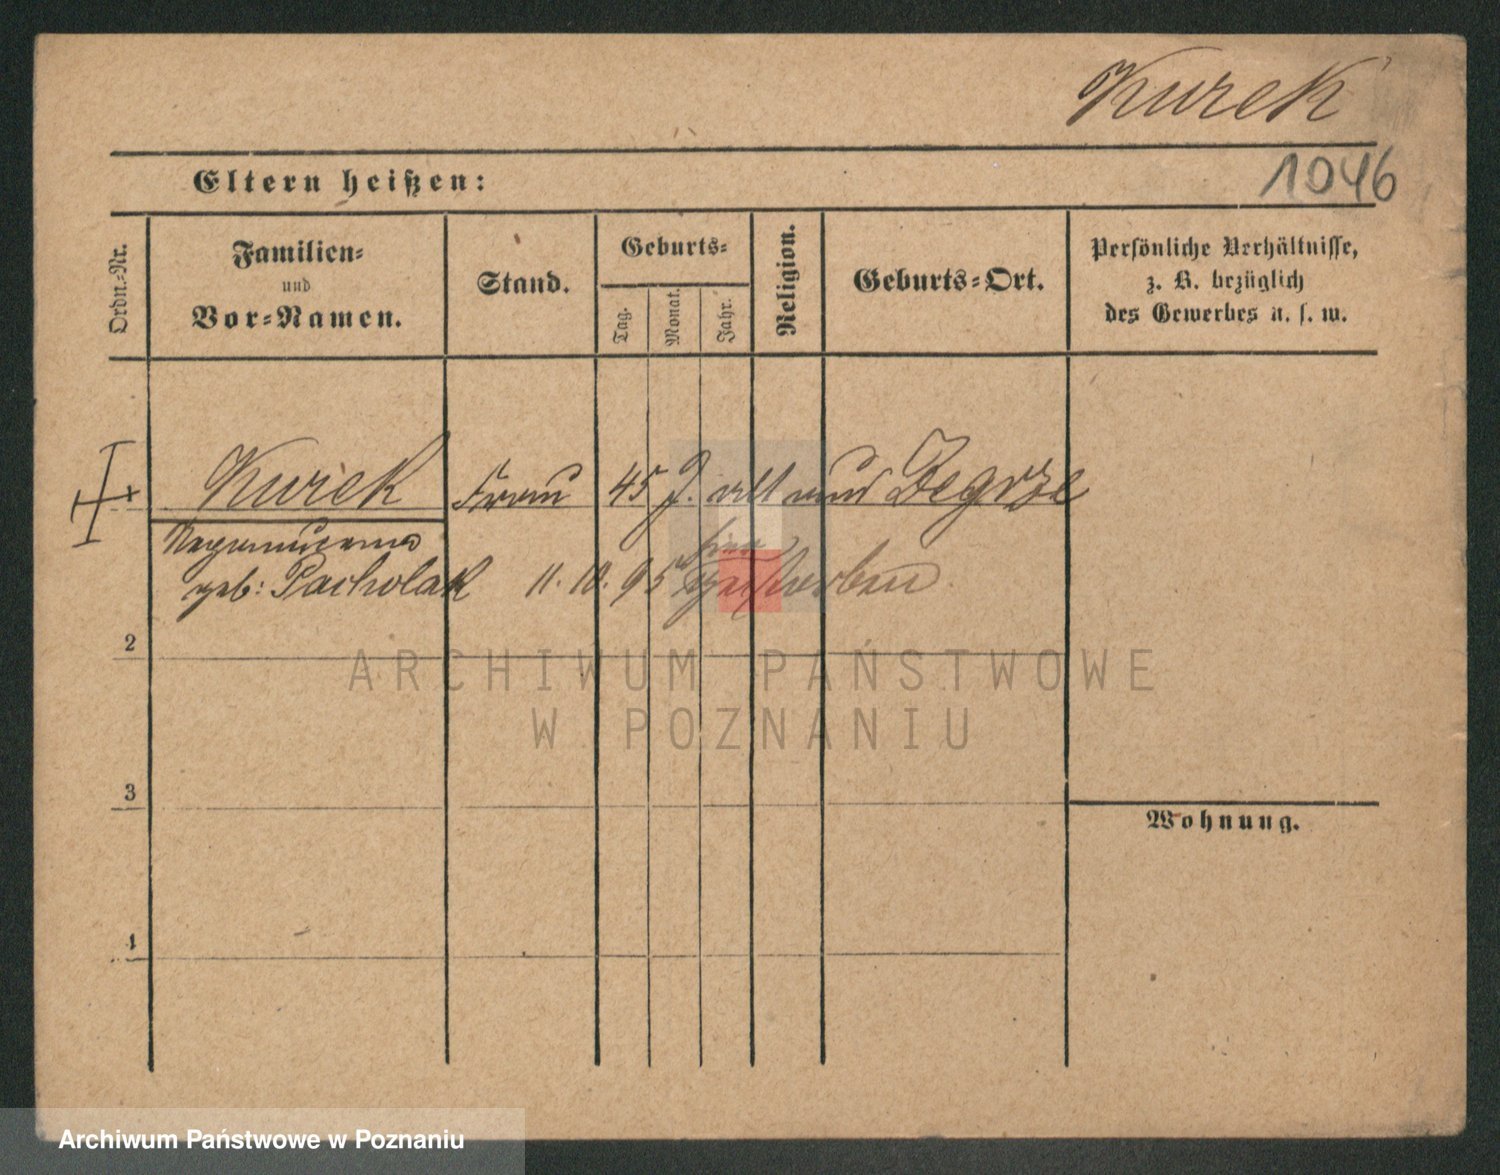 Kurek
1046
Eltern heißen:
Ordn.-Nr.
Familien-
und
Vor-Namen.
Stand.
Geburts-
Tag.
Monat.
Jahr.
Religion.
Geburts-Ort.
Persönliche Verhältnisse,
z. B. bezüglich
des Gewerbes u. s. w.
Kurek Frau 45 J. alt aus Zegrze
Nepomucena hier
geb: Pacholak 11. 10. 95 gestorben.
2
ARCHIWUM PAŃSTWOWE
W POZNANIU
3
Wohnung.
4
Archiwum Państwowe w Poznaniu